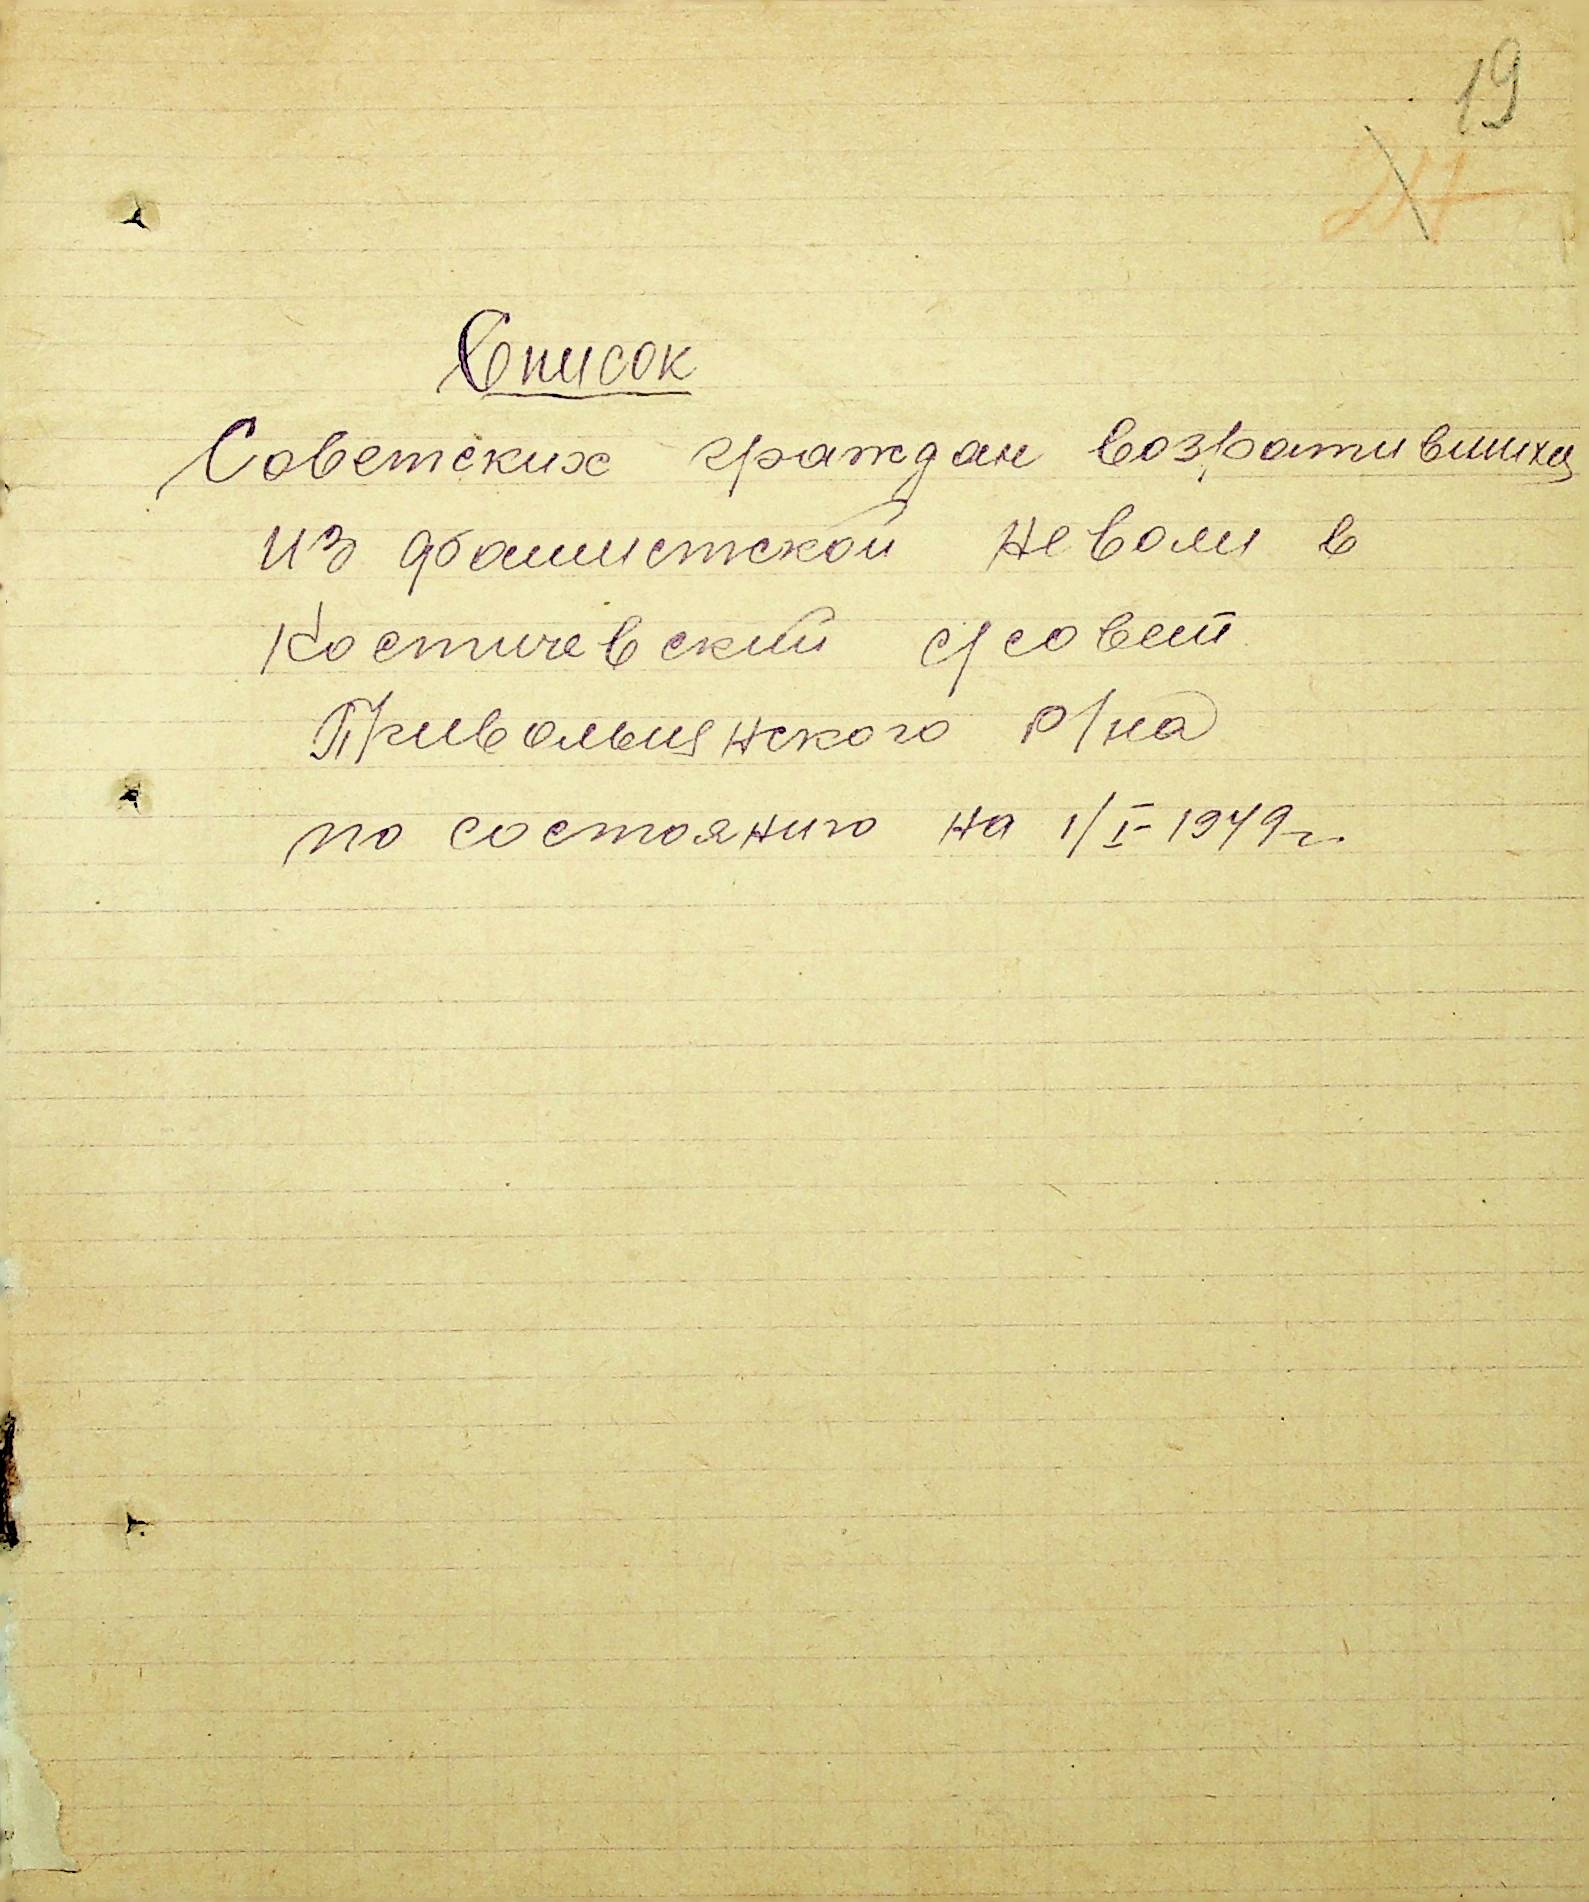 19
Список
Советских граждан возратившихся
из фашистской неволи в
Костичевский с/совет
Привольнянского р/на
по состоянию на 1/I-1949г.